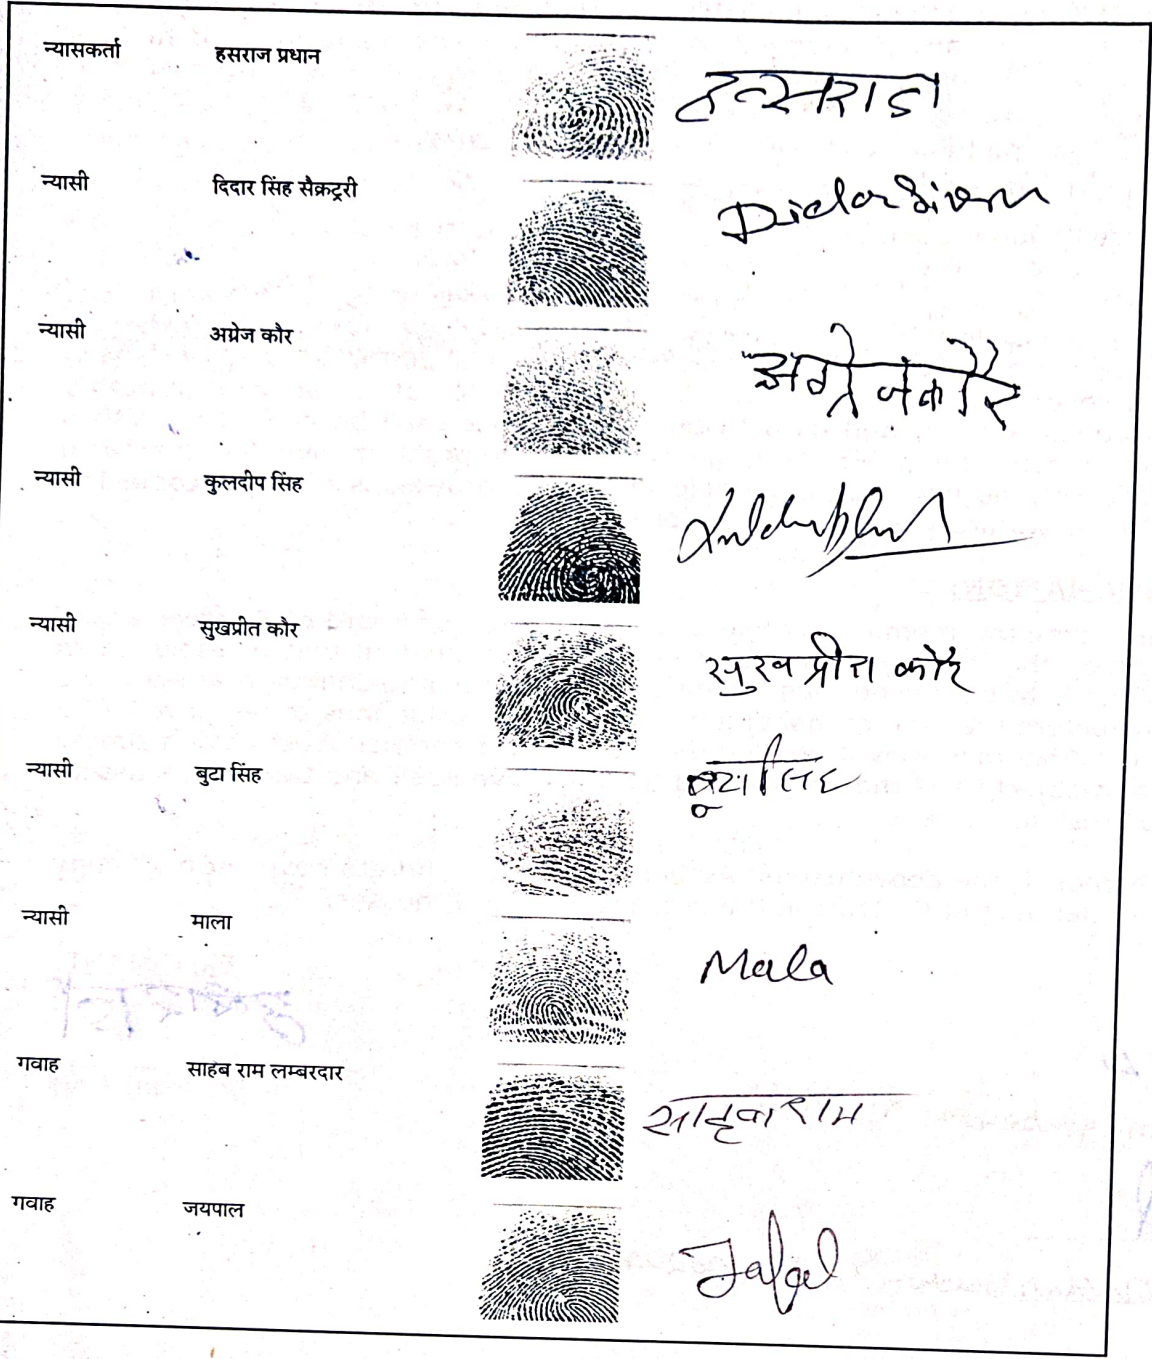 न्यासकर्ता हसराज प्रधान हन्सराज
न्यासी दिदार सिंह सैक्रट्री Didar Singh
न्यासी अग्रेज कौर अग्रेज कौर
न्यासी कुलदीप सिंह
न्यासी सुखप्रीत कौर सुखप्रीत कौर
न्यासी बुटा सिंह बूटा सिंह
न्यासी माला Mala
गवाह साहब राम लम्बरदार साहब राम
गवाह जयपाल